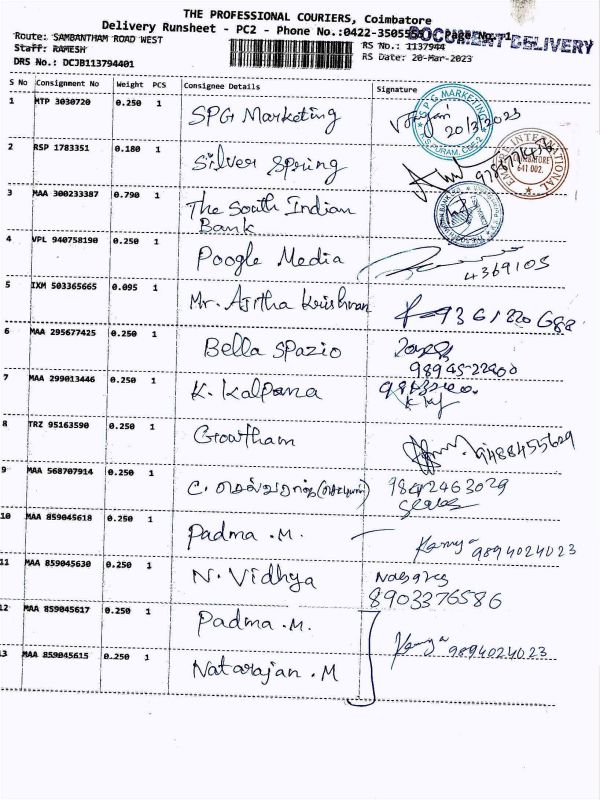 THE PROFESSIONAL COURIERS, Coimbatore
Delivery Runsheet - PC2 - Phone No.:0422-3505550 Page No. 1
DOCUMENT DELIVERY
Route: SAMBANTHAM ROAD WEST RS No.: 1137944
Staff: RAMESH RS Date: 20-Mar-2023
DRS No.: DCJB113794401
S No Consignment No Weight PCS Consignee Details Signature
1 MTP 3030720 0.250 1 SPG Marketing 20/3/2023
S P G MARKETING
2 RSP 1783351 0.180 1 Silver Spring
INTERNATIONAL
COIMBATORE
641 002.
3 MAA 300233387 0.790 1 The South Indian
Bank
4 VPL 940758190 0.250 1 Poogle Media 4369105
5 IXM 503365665 0.095 1 Mr. Ajitha Krishnan 9361220688
6 MAA 295677425 0.250 1 Bella Spazio
98945-22800
7 MAA 299013446 0.250 1 K. Kalpana
8 TRZ 95163590 0.250 1 Growtham 9488455629
9 MAA 568707914 0.250 1 C. 9842463029
10 MAA 859045618 0.250 1 Padma .M. Kamya 9894024023
11 MAA 859045630 0.250 1 N. Vidhya
8903376586
12 MAA 859045617 0.250 1 Padma .M.
Kamya 9894024023
13 MAA 859045615 0.250 1 Natarajan .M